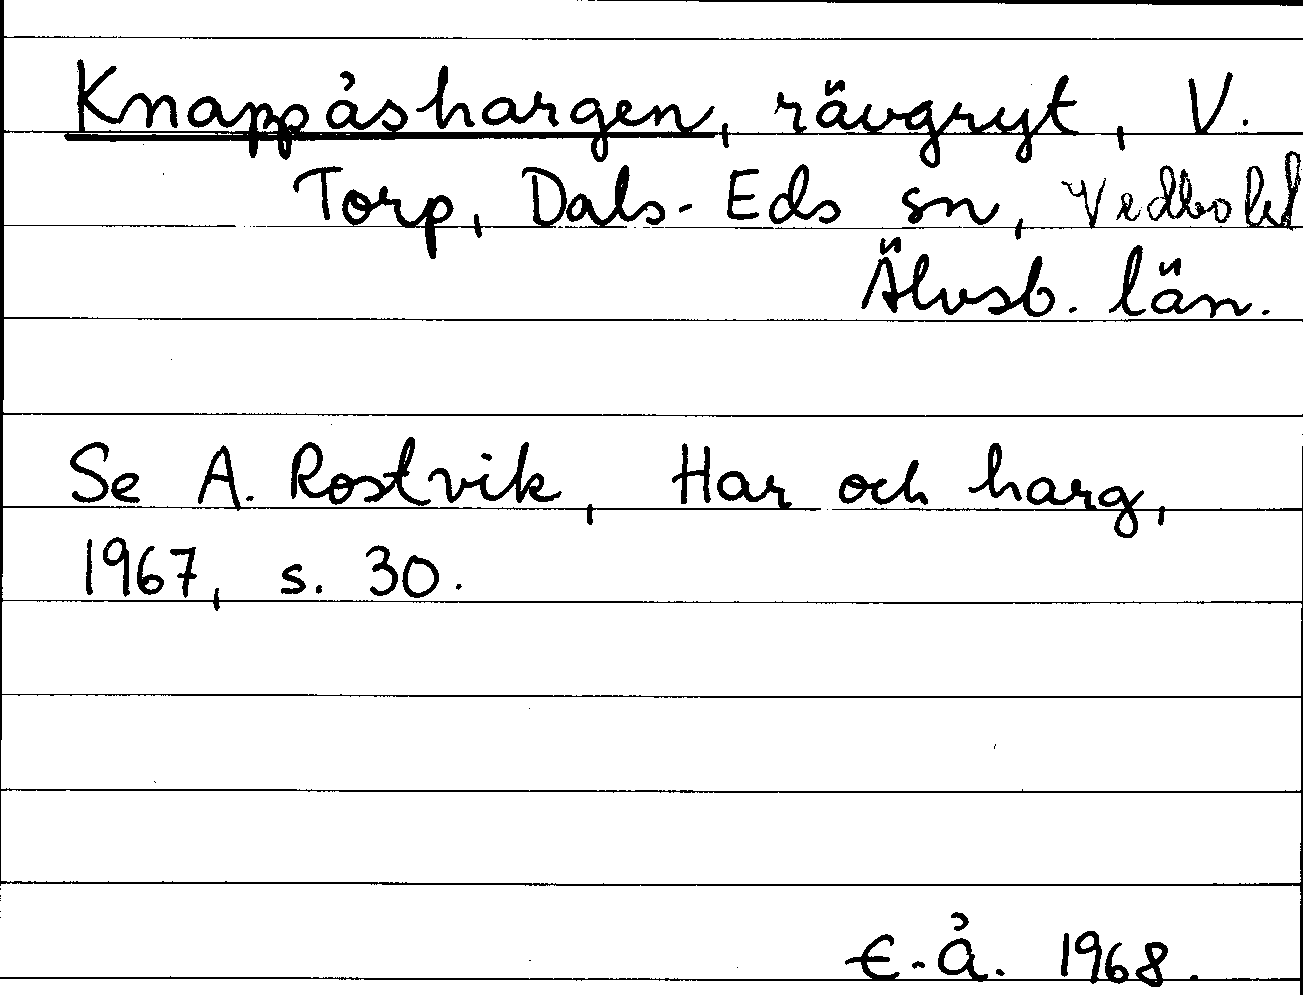 Knappåshargen, rävgryt, V.
Torp, Dals-Eds sn, Vedbo hd
Älvsb. län.
Se A. Rostvik, Har och harg,
1967, s. 30.
E.Å. 1968.